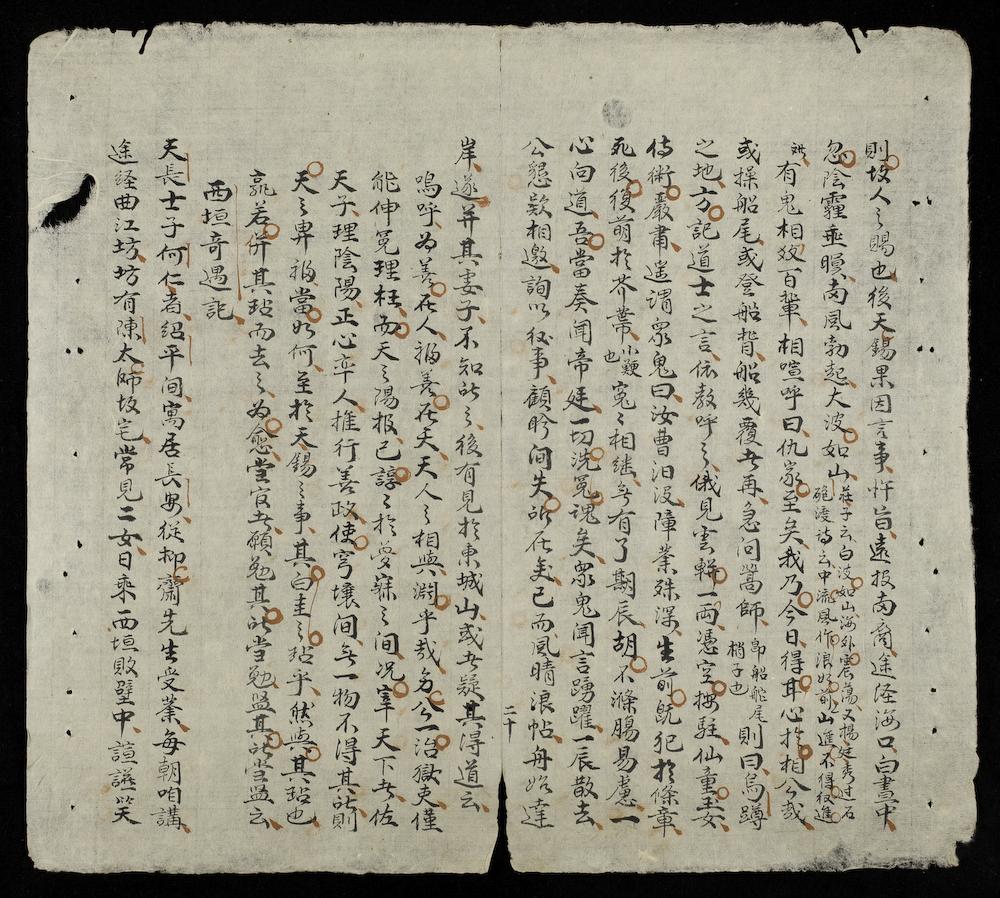 則故人之賜也後天錫果因言事忤旨遠投南裔途沿海口白晝中
忽陰霾垂暝南風勃起大波如山莊子云白波如山海外震蕩又楊廷秀过石
碓渡詩云中流風作浪如前山進不得後進
姚有鬼相效百輩相喧呼曰仇家至矣我乃今日得甘心於相公或
或操船尾或登船背船幾覆者再急问篙師帛船舵尾則曰烏蹲
梢子也
之地方記道士之言依教呼之俄見雲輧一両憑空按駐仙童玉女
侍衛嚴肅遥謂眾鬼曰汝曹汩没障業殊深生前既犯於條章
死後復萌於芥蔕小鯁冤冤相継無有了期辰胡不滌腸易慮一
也
心向道吾當奏闻帝廷一切洗冤魂矣眾鬼闻言踴躍一辰散去
公懇欵相邀詢以秘事顧盻间失所在矣已而風晴浪帖舟始達
二十
岸遂并其妻子不知所之後有見於東城山或者疑其得道云
嗚呼為善在人福善在天天人之相與淵乎哉夯公一治獄吏僅
能伸冤理枉而天之陽報已諄諄於夢寐之间况宰天下者佐
天子理陰陽正心率人推行善政使穹壤间無一物不得其所則
天之畀福當如何至於天錫之事其白圭之玷乎然與其玷也
孰若併其玷而去之為愈當官者願勉其所當勉監其所當監云
西垣奇遇記
天長士子何仁者紹平间寓居長安從抑齋先生受業每朝咱講
途経曲江坊坊有陳太師故宅常見二女日乘西垣敗壁中諠謔笑